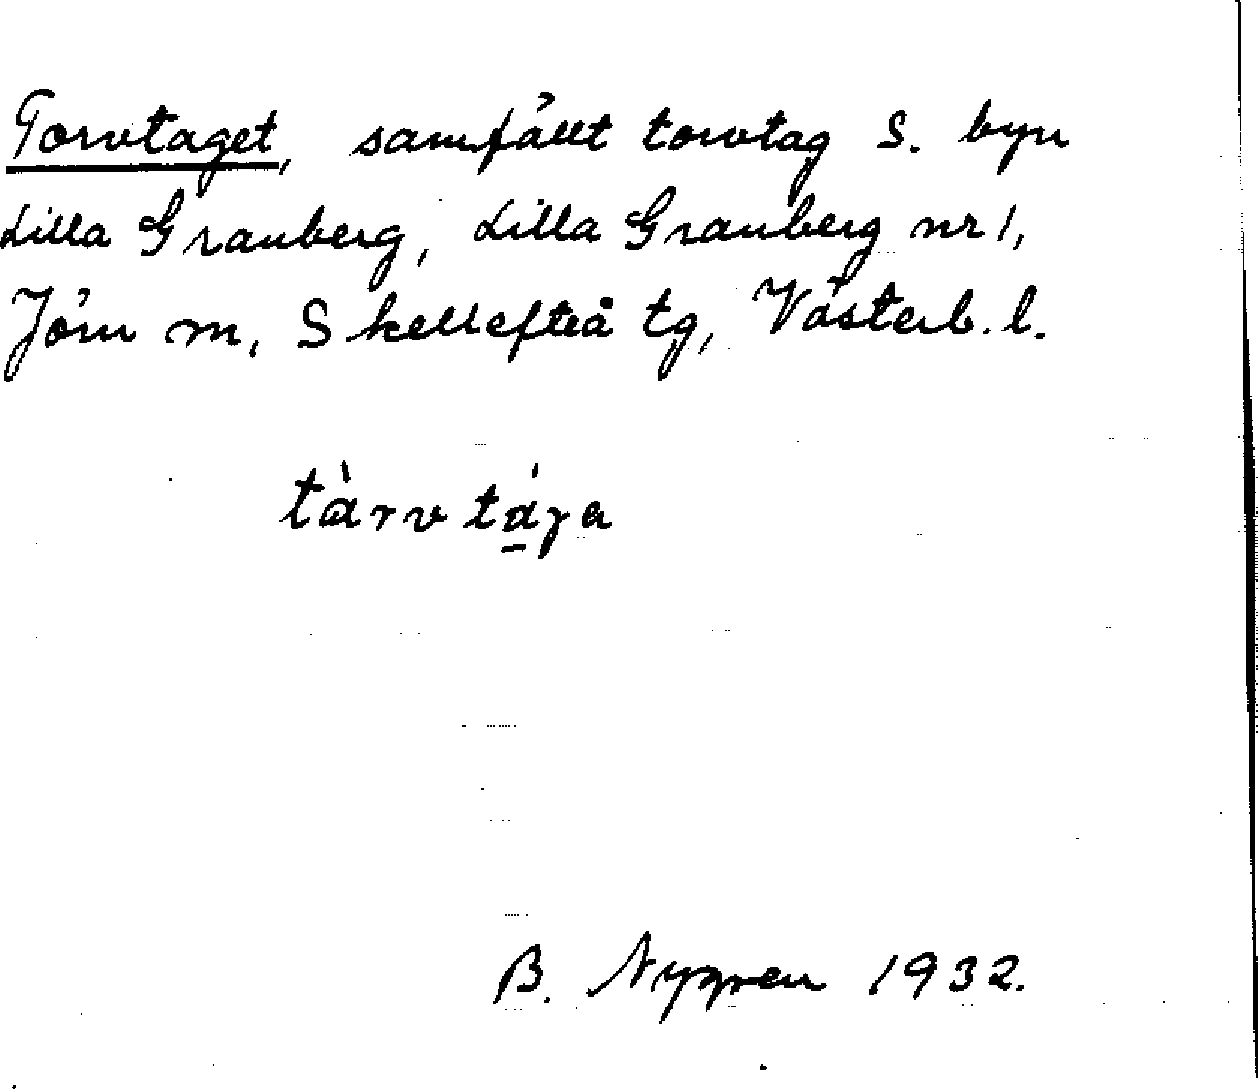 Torvtaget, samfällt torvtag S. byn
Lilla Granberg, Lilla Granberg nr 1,
Jörn sn, Skellefteå tg, Västerb. l.
tàrv tá̱ɣa
B. Nygren 1932.